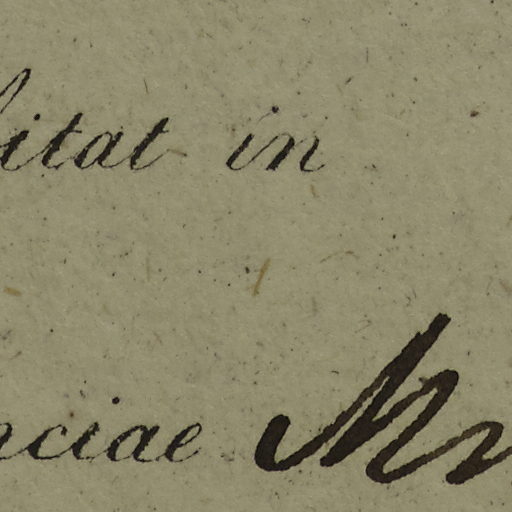 itat in
nciae